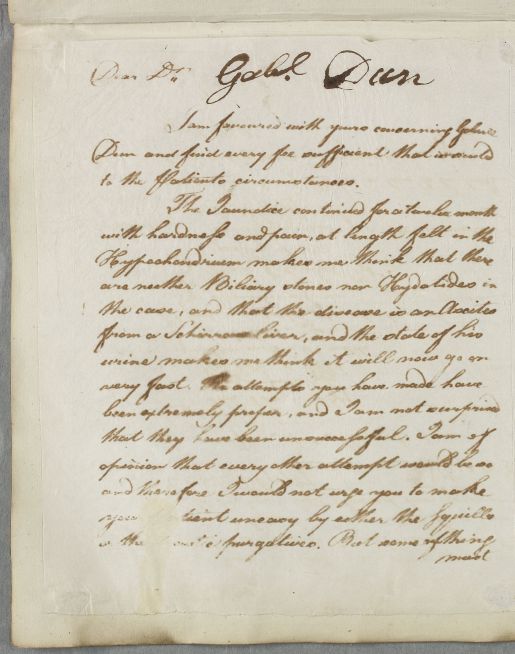 Dear Dr.
Gabl. Dun
I am favoured with yours concerning Gabriel
Dun and find every fee sufficient that is suited
to the Patients circumstances.
The Jaundice continued for a twelve month
with hardness and pain, at length felt in the
Hypochondrium makes me think that there
are neither Biliary stones nor Hydatides in
the case, and that the disease is an Ascites
from a Schirrous liver, and the state of his
urine makes me think it will now go on
very fast. The attempts you have made have
been extremely proper, and I am not surprised
that they have been unsuccessful. I am of
opinion that every other attempt would be so
and therefore I would not urge you to make
your Patient uneasy by either the Squills
or the purgatives. But some thing
must